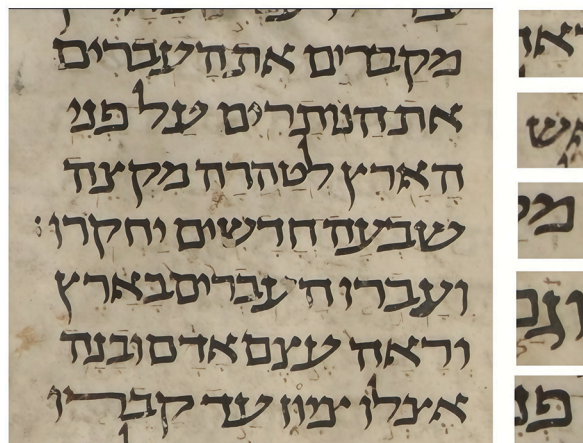 מקברים את העברים
את הנותרים על פני
הארץ לטהרה מקצה
שבעה חדשים יחקרו
ועברו העברים בארץ
וראה עצם אדם ובנה
אצלו ציון עד קברו